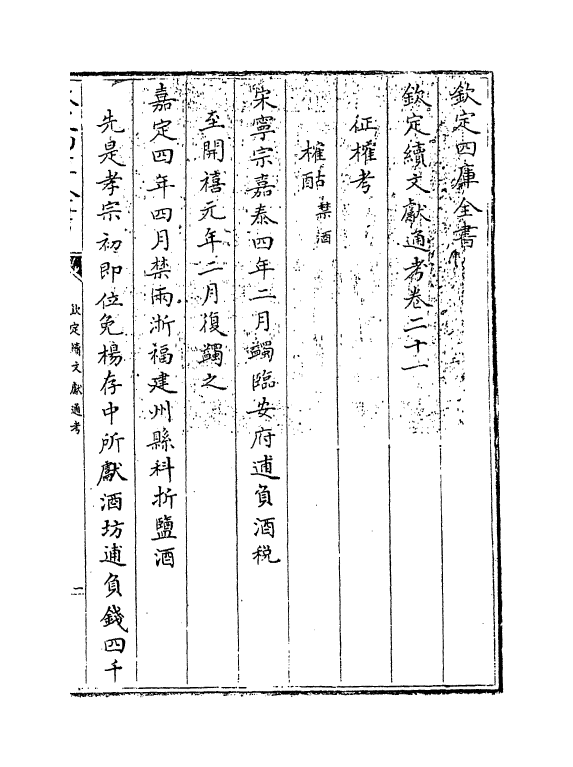 欽定四庫全書
欽定續文獻通考卷二十一
征榷考
榷酤 禁酒
宋寧宗嘉泰四年二月蠲臨安府逋負酒税
至開禧元年二月復蠲之
嘉定四年四月禁兩浙福建州縣科折鹽酒
先是孝宗初即位免楊存中所獻酒坊逋負錢四千
欽定續文獻通考